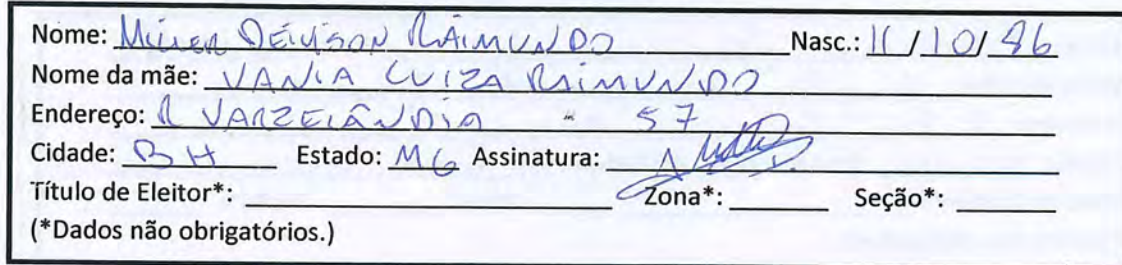 Nome: Müller Deivison Raimundo Nasc.: 11/10/86
Nome da mãe: VANIA LUIZA RAIMUNDO
Endereço: R VARZELÂNDIA 57
Cidade: BH Estado: MG Assinatura:
Título de Eleitor*: Zona*: Seção*:
(*Dados não obrigatórios.)